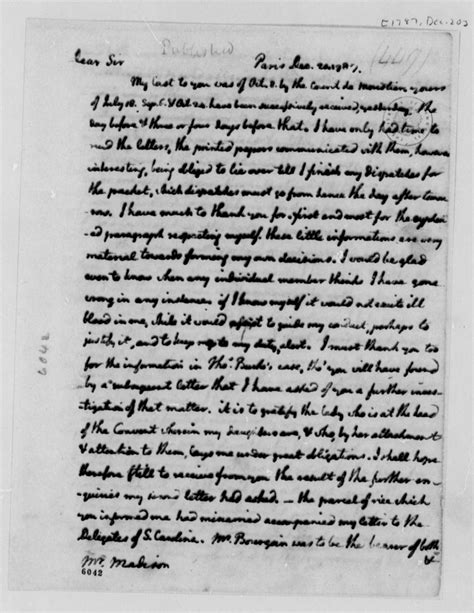 [1787, Dec. 20]
Published
(447)
Dear Sir
Paris Dec. 20. 1787.
My last to you was of Oct. 8. by the Count de Moustier. yours
of July 18. Sep. 6. & Oct. 24. have been successively received, yesterday, the
day before & three or four days before that. I have only had time to
read the letters, the printed papers communicated with them, however
interesting, being obliged to lie over till I finish my dispatches for
the packet, which dispatches must go from hence the day after tomor-
row. I have much to thank you for. first and most for the cypher-
ed paragraph respecting myself. these little informations are very
material towards forming my own decisions. I would be glad
even to know when any individual member thinks I have gone
wrong in any instance. if I know myself it would not excite ill
blood in me, while it would assist to guide my conduct, perhaps to
justify it, and to keep me to my duty, alert. I must thank you too
for the information in Thos. Burke's case, tho' you will have found
by a subsequent letter that I have asked of you a further inves-
tigation of that matter. it is to gratify the lady who is at the head
of the Convent wherein my daughters are, & who, by her attachment
& attention to them, lays me under great obligations. I shall hope
therefore still to receive from you the result of the further en-
quiries my second letter had asked. — the parcel of rice which
you informed me had miscarried accompanied my letter to the
Delegates of S. Carolina. Mr. Bourgoin was to be the bearer of both
&
Mr. Madison
6042
6042